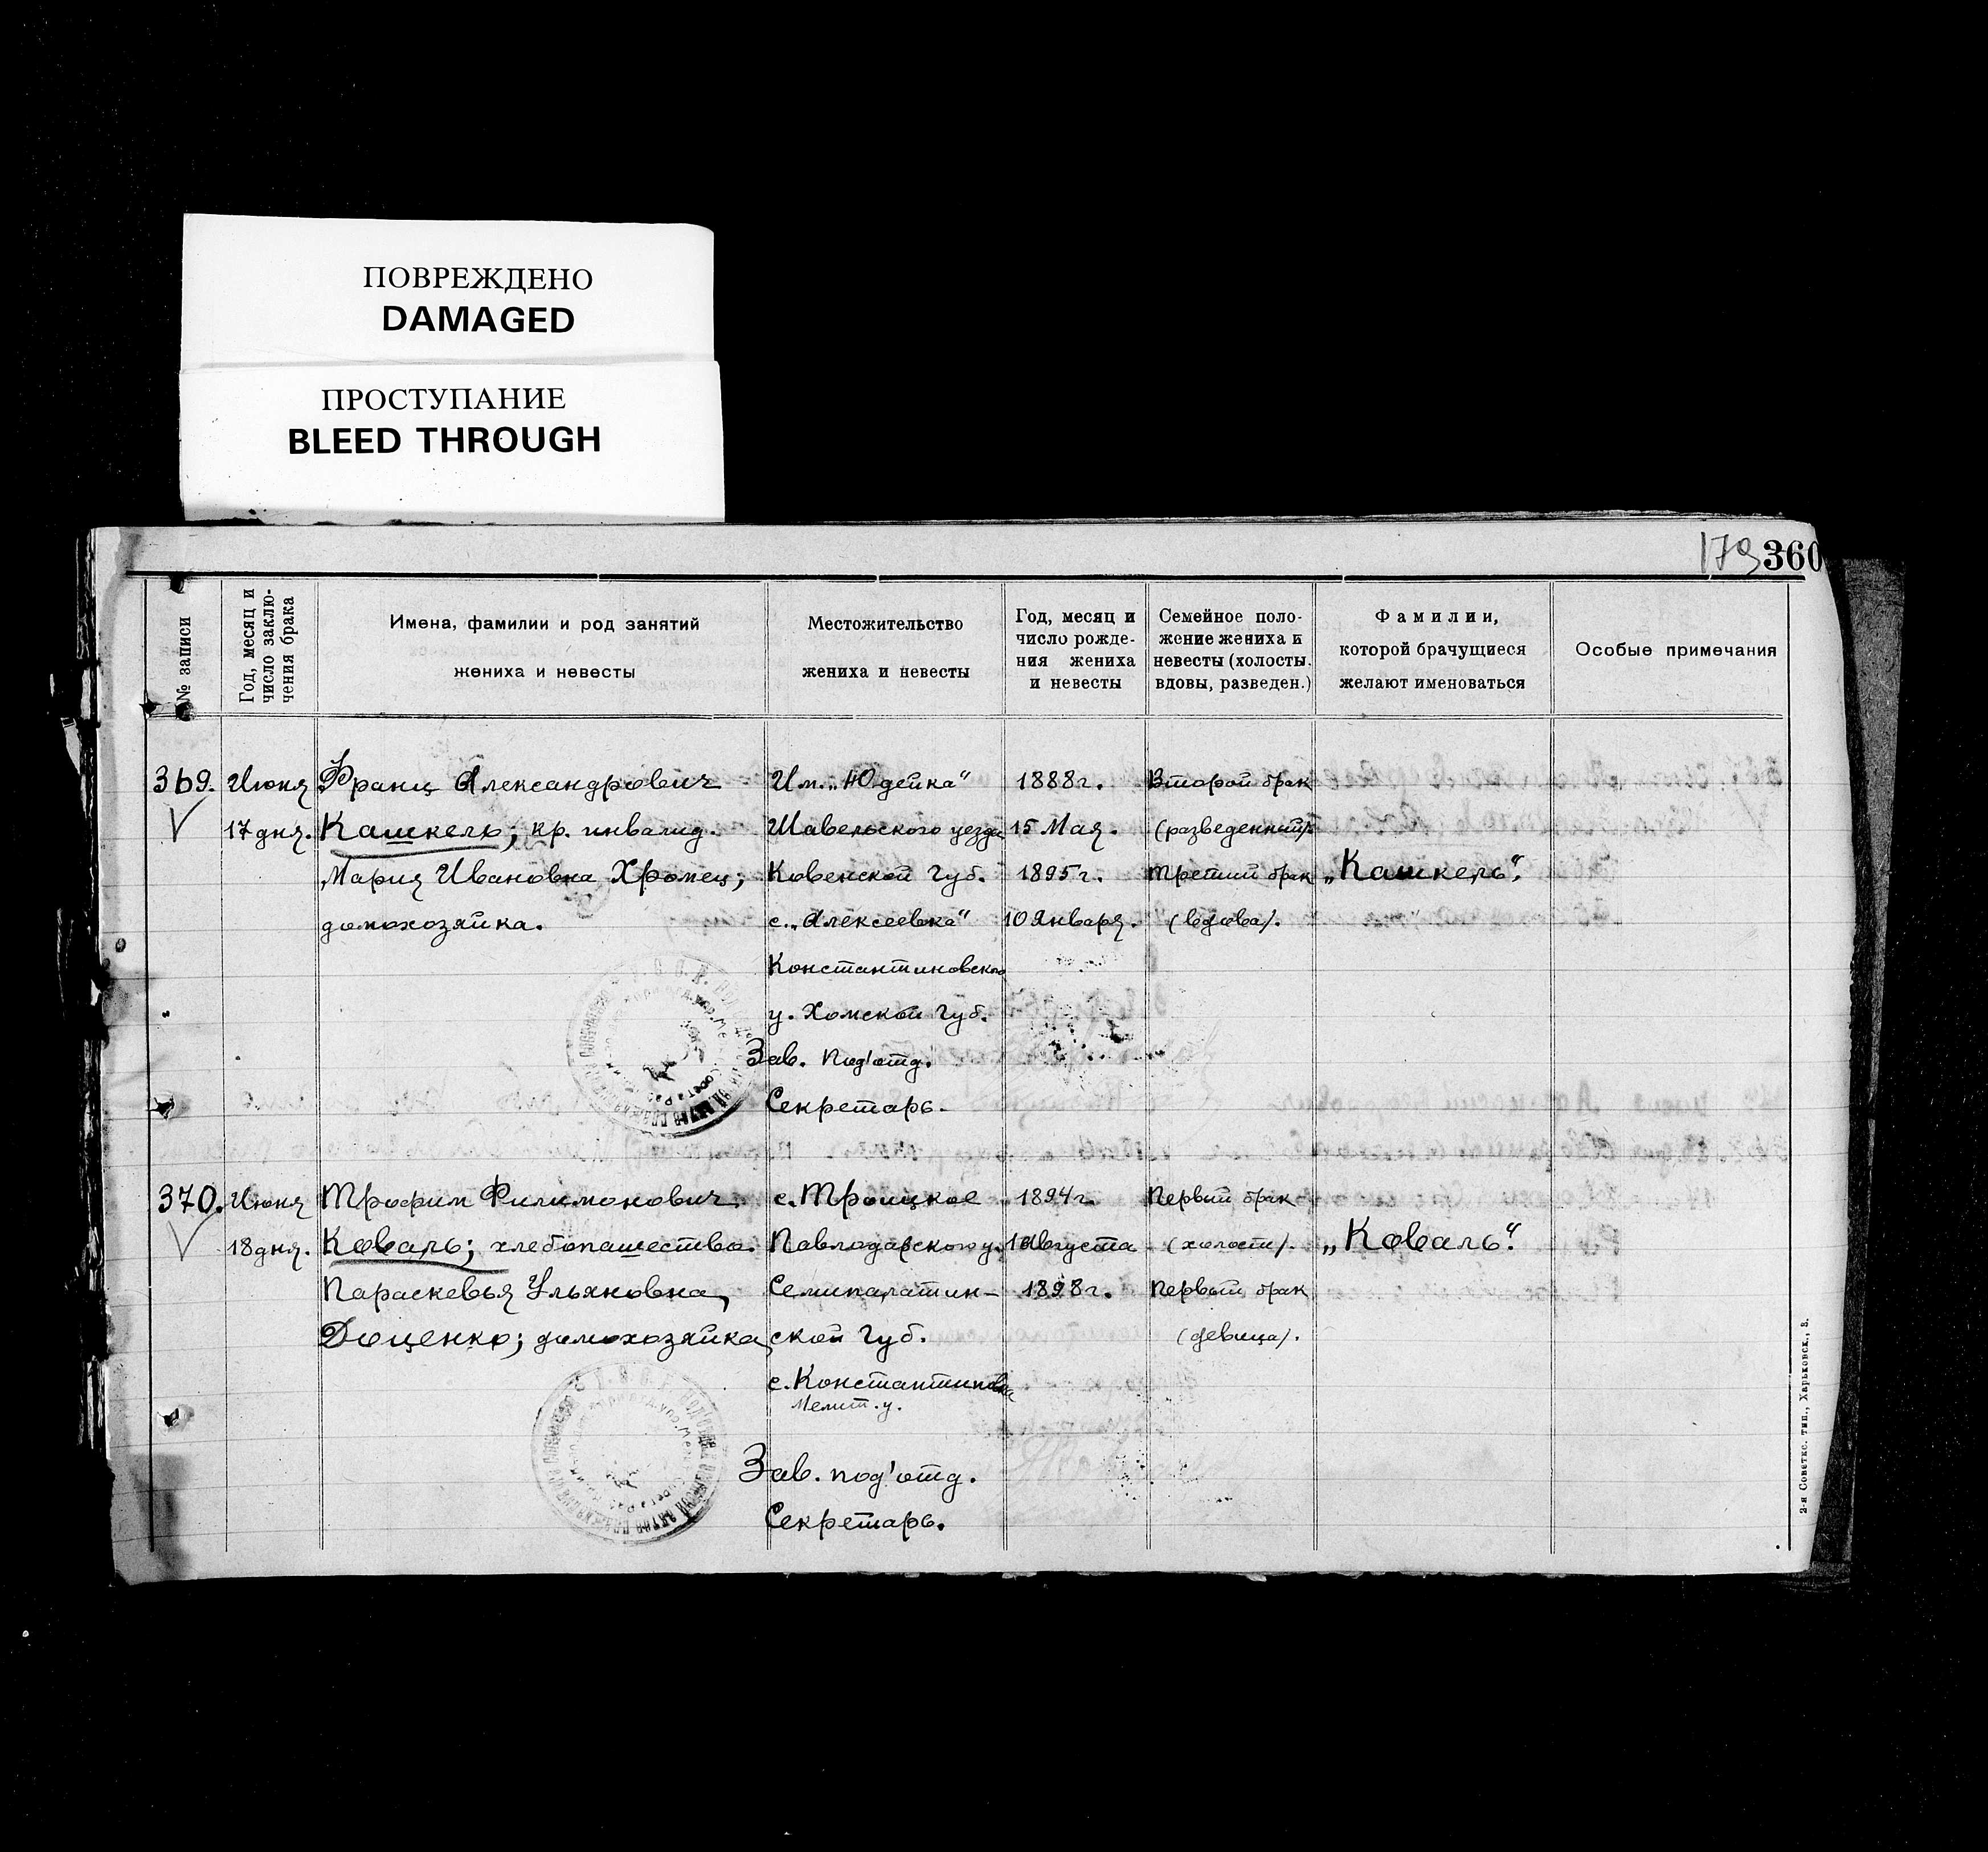 ПОВРЕЖДЕНО
DAMAGED
ПРОСТУПАНИЕ
BLEED THROUGH
179 360
№ записи
Год, месяц и
число заклю-
чения брака
Имена, фамилии и род занятий
жениха и невесты
Местожительство
жениха и невесты
Год, месяц и
число рожде-
ния жениха
и невесты
Семейное поло-
жение жениха и
невесты (холосты.
вдовы, разведен.)
Фамилии,
которой брачущиеся
желают именоваться
Особые примечания
369. Июня Франц Александрович Им. „Юдейка" 1888г. Второй брак
17 дня. Кашкель; кр. инвалид. Шавельского уезда 15 Мая. (разведенный).
Мария Ивановна Хромец; Ковенской Губ. 1895г. Третий брак „Кашкель".
домохозяйка. с. „Алексеевка" 10 Января. (вдова).
Константиновского
у. Холмской Губ.
Зав. Под'отд.
Секретарь.
370. Июня Трофим Филимонович с. Троицкое 1894г. Первый брак
18 дня. Коваль; хлебопашество. Павлодарского у. 1 Августа (холост). „Коваль".
Параскевья Ульяновна Семипалатин- 1898г. Первый брак
Доценко; домохозяйка ской Губ. (девица).
с. Константиновка
Мелит. у.
Зав. под'отд.
Секретарь.
2-я Советск. тип., Харьковск., 3.